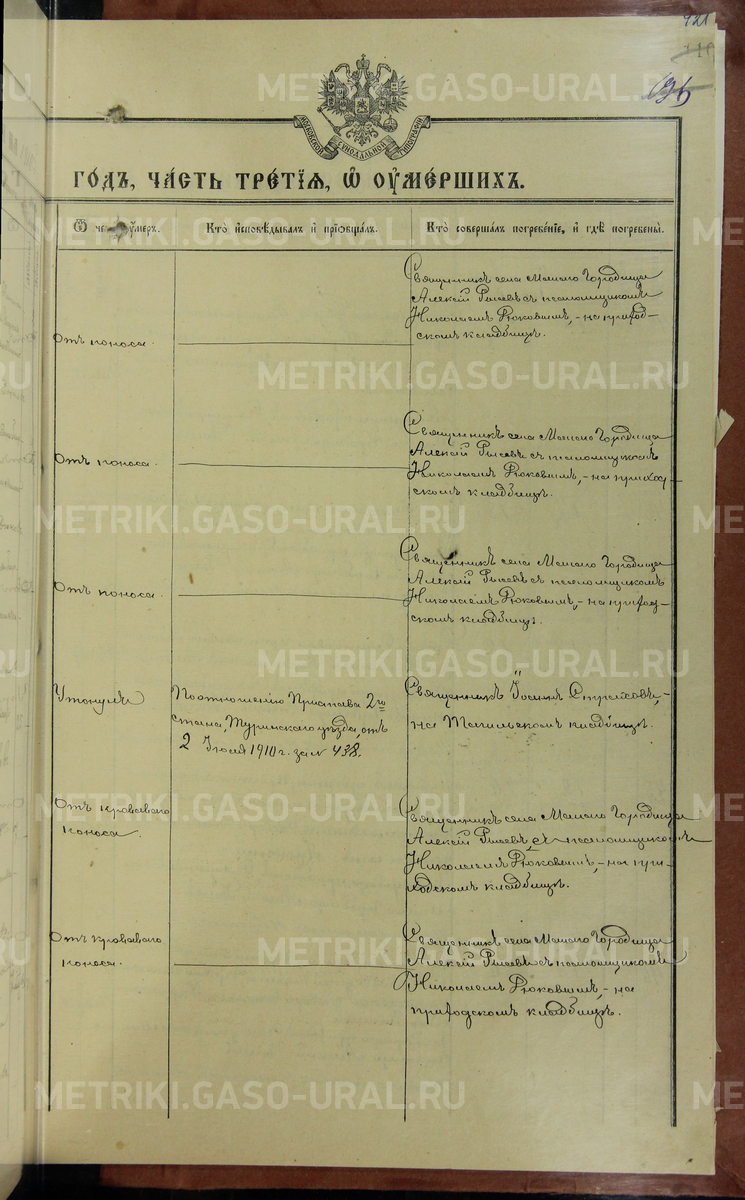 421
110
МОСКОВСКОЙ СѴНОДАЛЬНОЙ ТИПОГРАФІИ
ГО́ДЪ, ЧА́СТЬ ТРЕ́ТІѦ, Ѡ ОУМЕ́РШИХЪ.
Ѿ чегѡ ᲂумеръ.
Кто̀ исповѣ́дывалъ и҆ прїѡбща́лъ.
Кто̀ соверша́лъ погребе́нїе, и҆ гдѣ̀ погребены̀.
Отъ поноса.
Священникъ села Малаго Городища
Алексій съ псаломщикомъ
Николаемъ – на приход-
скомъ кладбищѣ.
Отъ поноса.
Священникъ села Малаго Городища
Алексій съ псаломщикомъ
Николаемъ – на приход-
скомъ кладбищѣ.
Отъ поноса.
Священникъ села Малаго Городища
Алексій съ псаломщикомъ
Николаемъ – на приход-
скомъ кладбищѣ.
Утонулъ
По отношенію Пристава 2го
стана, Туринскаго уѣзда, отъ
2 Іюля 1910 г. за № 438.
Священникъ Іоаннъ –
на Тагильскомъ кладбищѣ.
Отъ кроваваго
поноса.
Священникъ села Малаго Городища
Алексій съ псаломщикомъ
Николаемъ – на при-
ходскомъ кладбищѣ.
Отъ кроваваго
поноса.
Священникъ села Малаго Городища
Алексій съ псаломщикомъ
Николаемъ – на
приходскомъ кладбищѣ.
METRIKI.GASO-URAL.RU